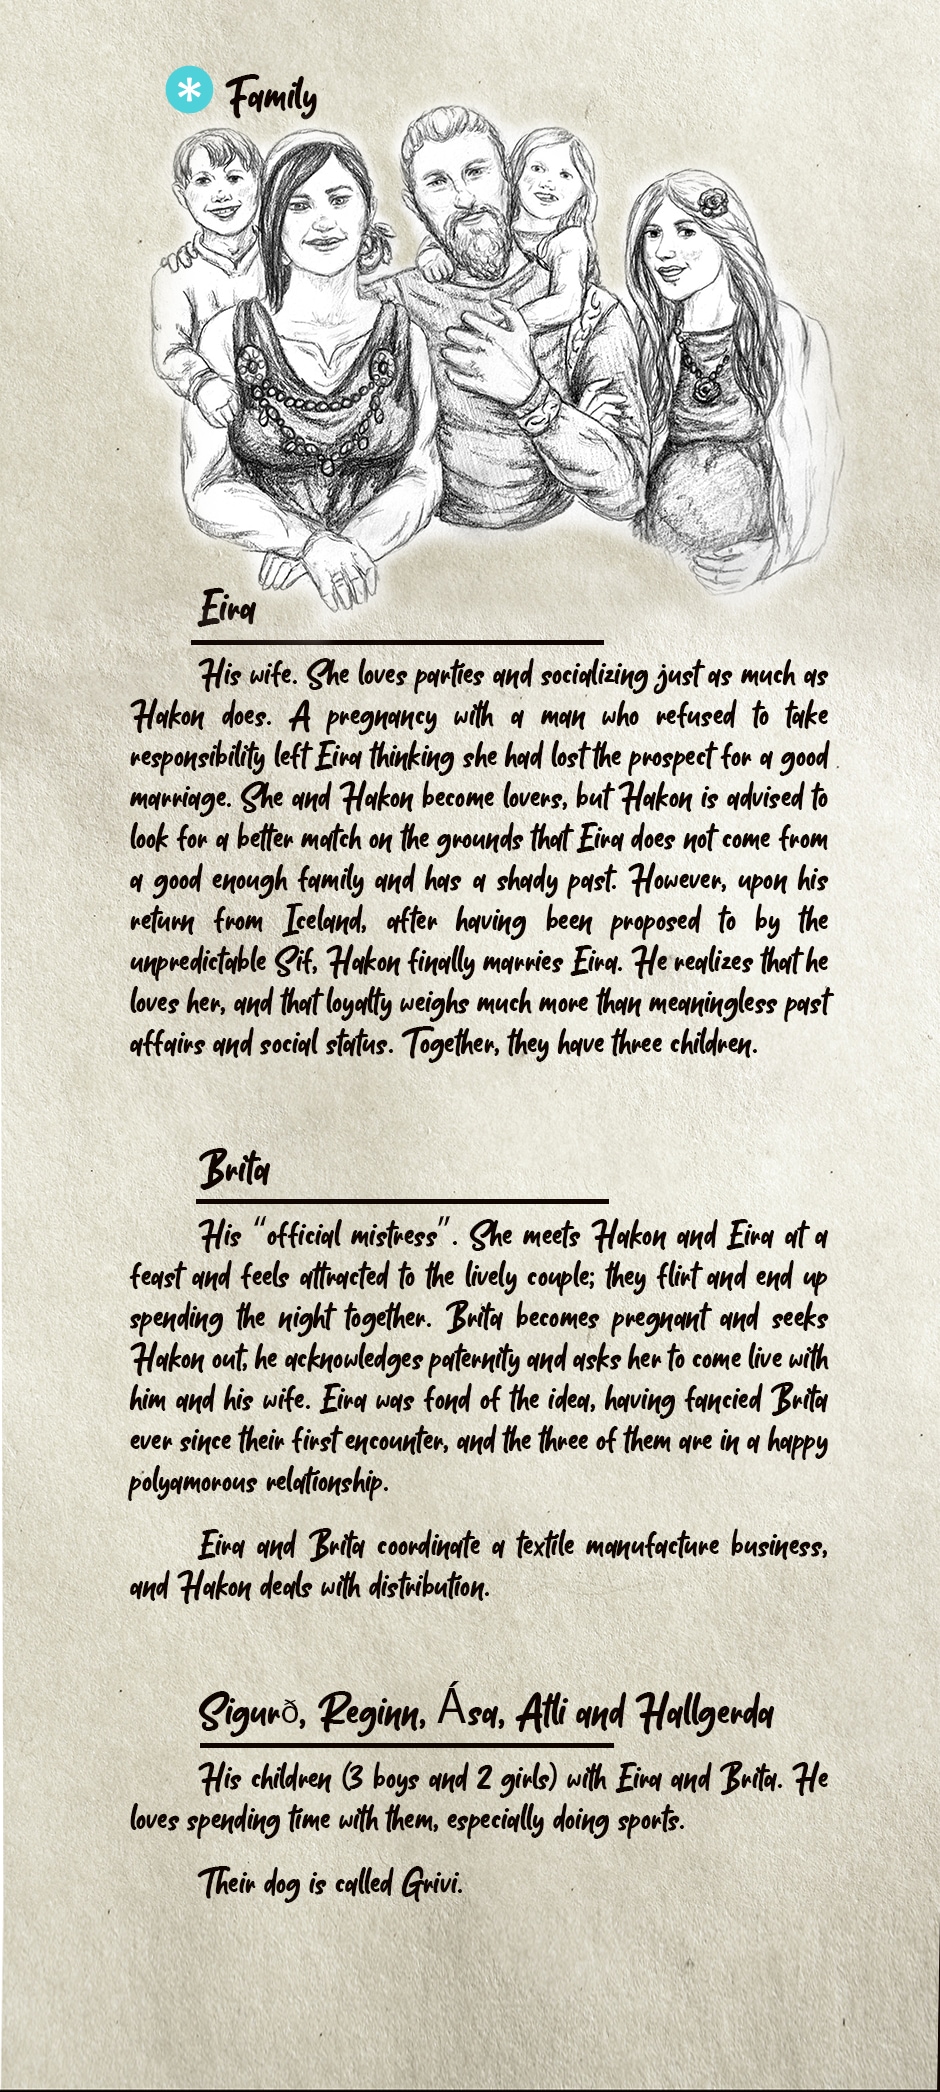 * Family
Eira
His wife. She loves parties and socializing just as much as
Hakon does. A pregnancy with a man who refused to take
responsibility left Eira thinking she had lost the prospect for a good
marriage. She and Hakon become lovers, but Hakon is advised to
look for a better match on the grounds that Eira does not come from
a good enough family and has a shady past. However, upon his
return from Iceland, after having been proposed to by the
unpredictable Sif, Hakon finally marries Eira. He realizes that he
loves her, and that loyalty weighs much more than meaningless past
affairs and social status. Together, they have three children.
Brita
His “official mistress”. She meets Hakon and Eira at a
feast and feels attracted to the lively couple; they flirt and end up
spending the night together. Brita becomes pregnant and seeks
Hakon out, he acknowledges paternity and asks her to come live with
him and his wife. Eira was fond of the idea, having fancied Brita
ever since their first encounter, and the three of them are in a happy
polyamorous relationship.
Eira and Brita coordinate a textile manufacture business,
and Hakon deals with distribution.
Sigurð, Reginn, Ása, Atli and Hallgerda
His children (3 boys and 2 girls) with Eira and Brita. He
loves spending time with them, especially doing sports.
Their dog is called Grivi.